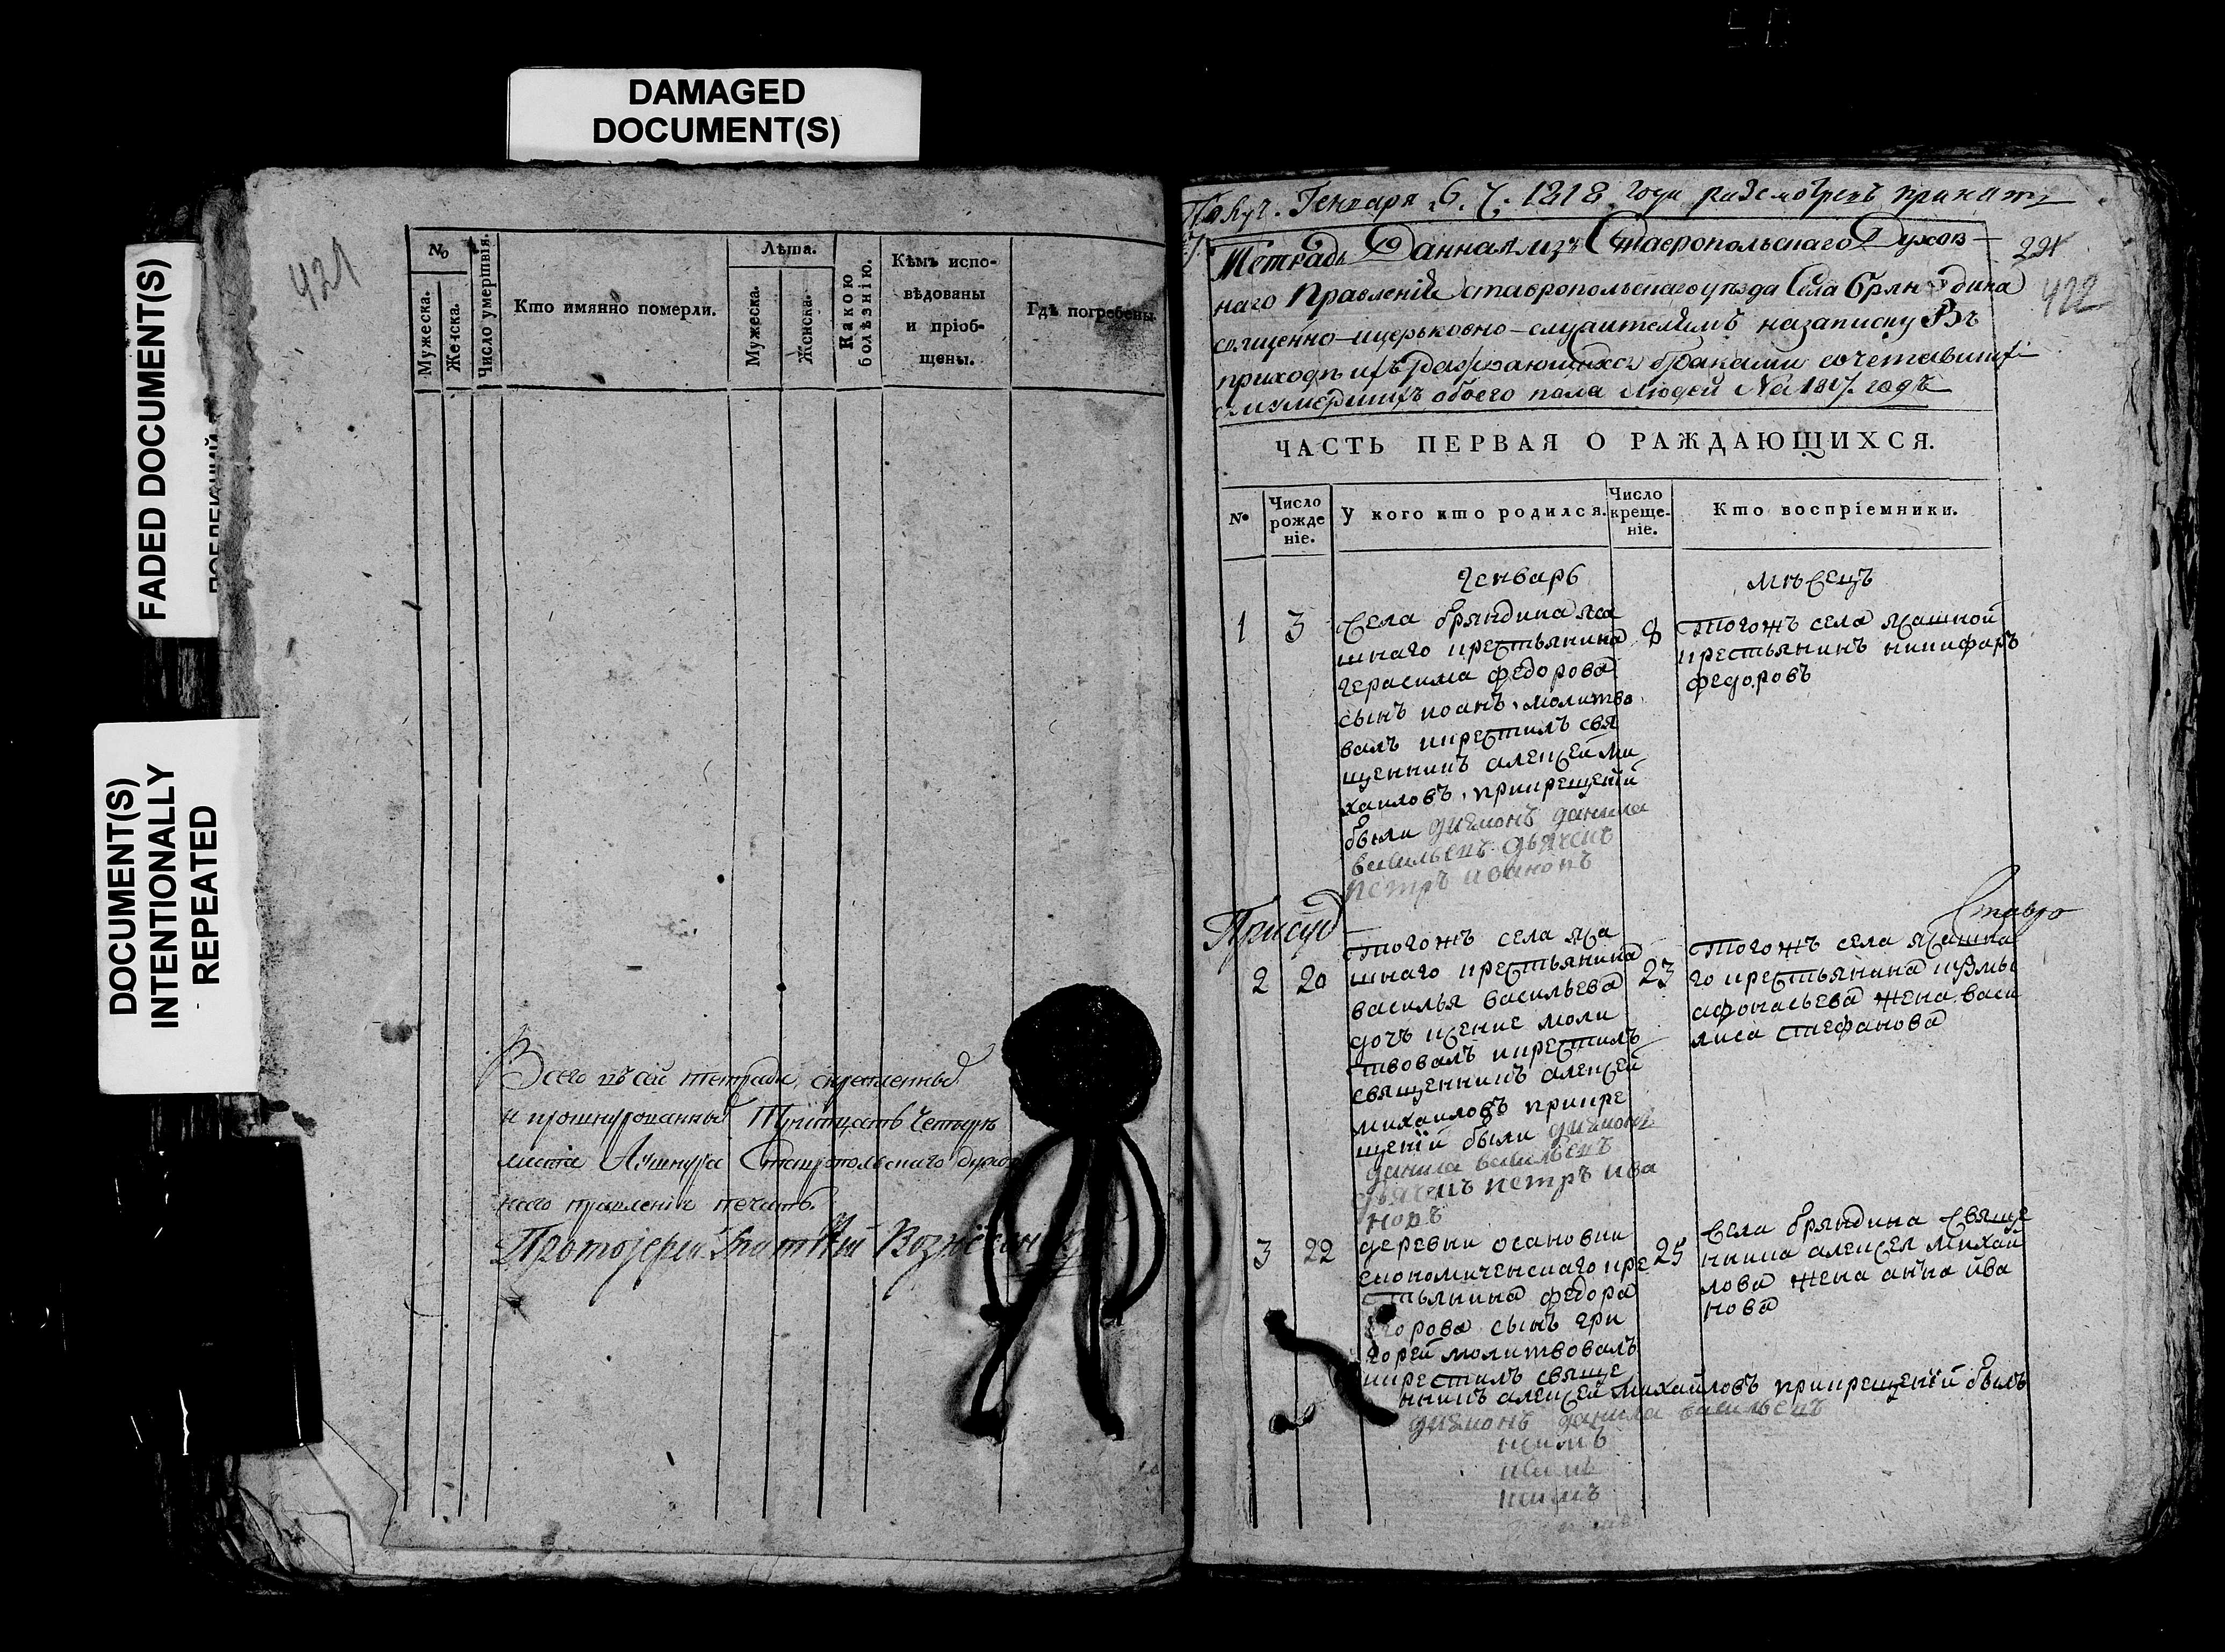 DAMAGED
DOCUMENT(S)
FADED DOCUMENT(S)
DOCUMENT(S)
INTENTIONALLY
REPEATED
421
№
Мужеска.
Женска.
Число умертвія.
Кто имянно померли.
Лѣта.
Мужеска.
Женска.
Какою
болѣзнію.
Кѣмъ испо-
вѣдованы
и пріоб-
щены.
Гдѣ погребены.
Всего въ сей тетради, скрепленныхъ
и прошнурованныхъ Тритцать четыре
листа Ушнура Ставропольскаго духов
наго правленія печать.
Протоіерей
Генваря 6. 1818 года разсмотренъ принятъ
Тетрадь Данная изъ Ставропольскаго Духов-
наго Правленія ставропольскаго уѣзда Села Бряндина
священно-ицерьковно-служителямъ назаписку Въ
приходѣ ихъ Раждающихся браками сочетавших
умершихъ обоего пола Людей На 1817. годъ
221
422
ЧАСТЬ ПЕРВАЯ О РАЖДАЮЩИХСЯ.
№
Число
рожде
ніе.
У кого кто родился.
Число
креще-
ніе.
Кто воспріемники.
Генварь
мѣсецъ
1
3
Села бряндина яса
шнаго крестьянина
герасима федорова
сынъ иоанъ, молитво
валъ икрестилъ свя
щенникъ алексей ми
хаиловъ, прикрещеній
были диаконъ данила
васильевъ дьячекъ
петръ ивановъ
8
тогожъ села ясашной
крестьянинъ никифоръ
федоровъ
Присуд
Ставро
2
20
тогожъ села яса
шнаго крестьянина
василья васильева
дочь ксение моли
твовалъ икрестилъ
священникъ алексей
михаиловъ прикре
щеній были диаконъ
данила васильевъ
дьячекъ петръ ива
новъ
23
тогожъ села ясашна
го крестьянина кузмы
афонасьева жена васи
лиса стефанова
3
22
деревни осановки
економиченскаго кре
стьянина федора
егорова сынъ гри
горей молитвовалъ
икрестилъ свяще
нникъ алексей михайловъ прикрещеній былъ
диаконъ данила васильевъ
25
Села бряндина свяще
нника алексея михай
лова жена анна ива
нова